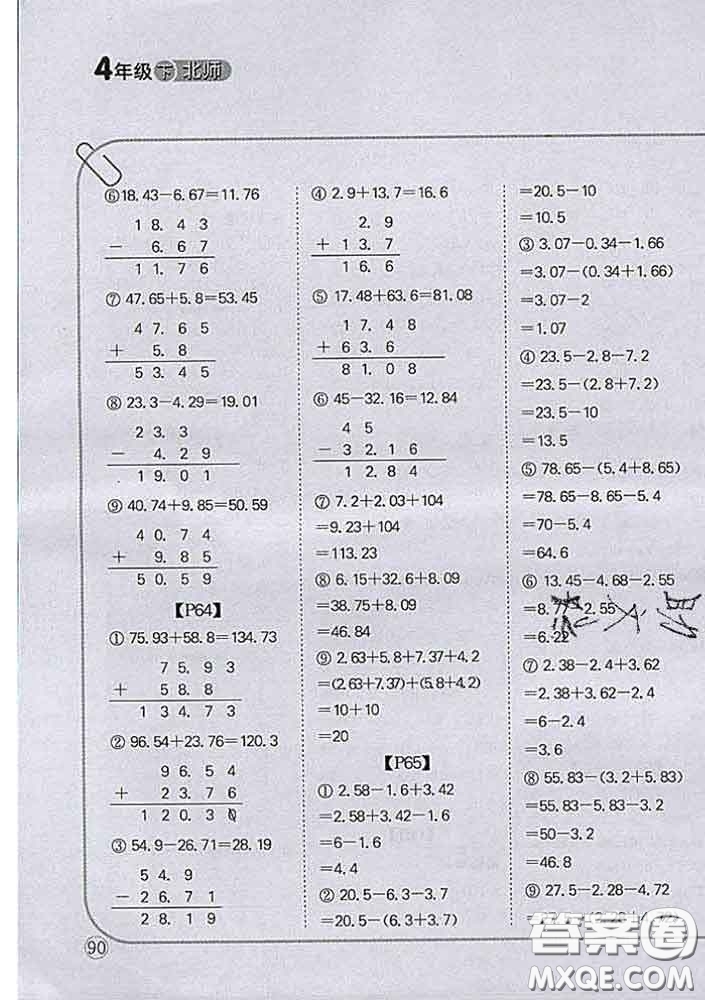 4年级 下 北师
⑥18.43-6.67=11.76
18.43
- 6.67
11.76
⑦ 47.65+5.8=53.45
47.65
+ 5.8
53.45
⑧ 23.3-4.29=19.01
23.3
- 4.29
19.01
⑨ 40.74+9.85=50.59
40.74
+ 9.85
50.59
【P64】
① 75.93+58.8=134.73
75.93
+ 58.8
134.73
② 96.54+23.76=120.3
96.54
+ 23.76
120.30
③ 54.9-26.71=28.19
54.9
-26.71
28.19
④ 2.9+13.7=16.6
2.9
+13.7
16.6
⑤ 17.48+63.6=81.08
17.48
+63.6
81.08
⑥ 45-32.16=12.84
45
-32.16
12.84
⑦ 7.2+2.03+104
=9.23+104
=113.23
⑧ 6.15+32.6+8.09
=38.75+8.09
=46.84
⑨ 2.63+5.8+7.37+4.2
=(2.63+7.37)+(5.8+4.2)
=10+10
=20
【P65】
① 2.58-1.6+3.42
=2.58+3.42-1.6
=6-1.6
=4.4
② 20.5-6.3-3.7
=20.5-(6.3+3.7)
=20.5-10
=10.5
③ 3.07-0.34-1.66
=3.07-(0.34+1.66)
=3.07-2
=1.07
④ 23.5-2.8-7.2
=23.5-(2.8+7.2)
=23.5-10
=13.5
⑤ 78.65-(5.4+8.65)
=78.65-8.65-5.4
=70-5.4
=64.6
⑥ 13.45-4.68-2.55
=8.77-2.55
=6.22
⑦ 2.38-2.4+3.62
=2.38+3.62-2.4
=6-2.4
=3.6
⑧ 55.83-(3.2+5.83)
=55.83-5.83-3.2
=50-3.2
=46.8
⑨ 27.5-2.28-4.72
=27.5-(2.28+4.72)
90
答案圈
MXQE.COM